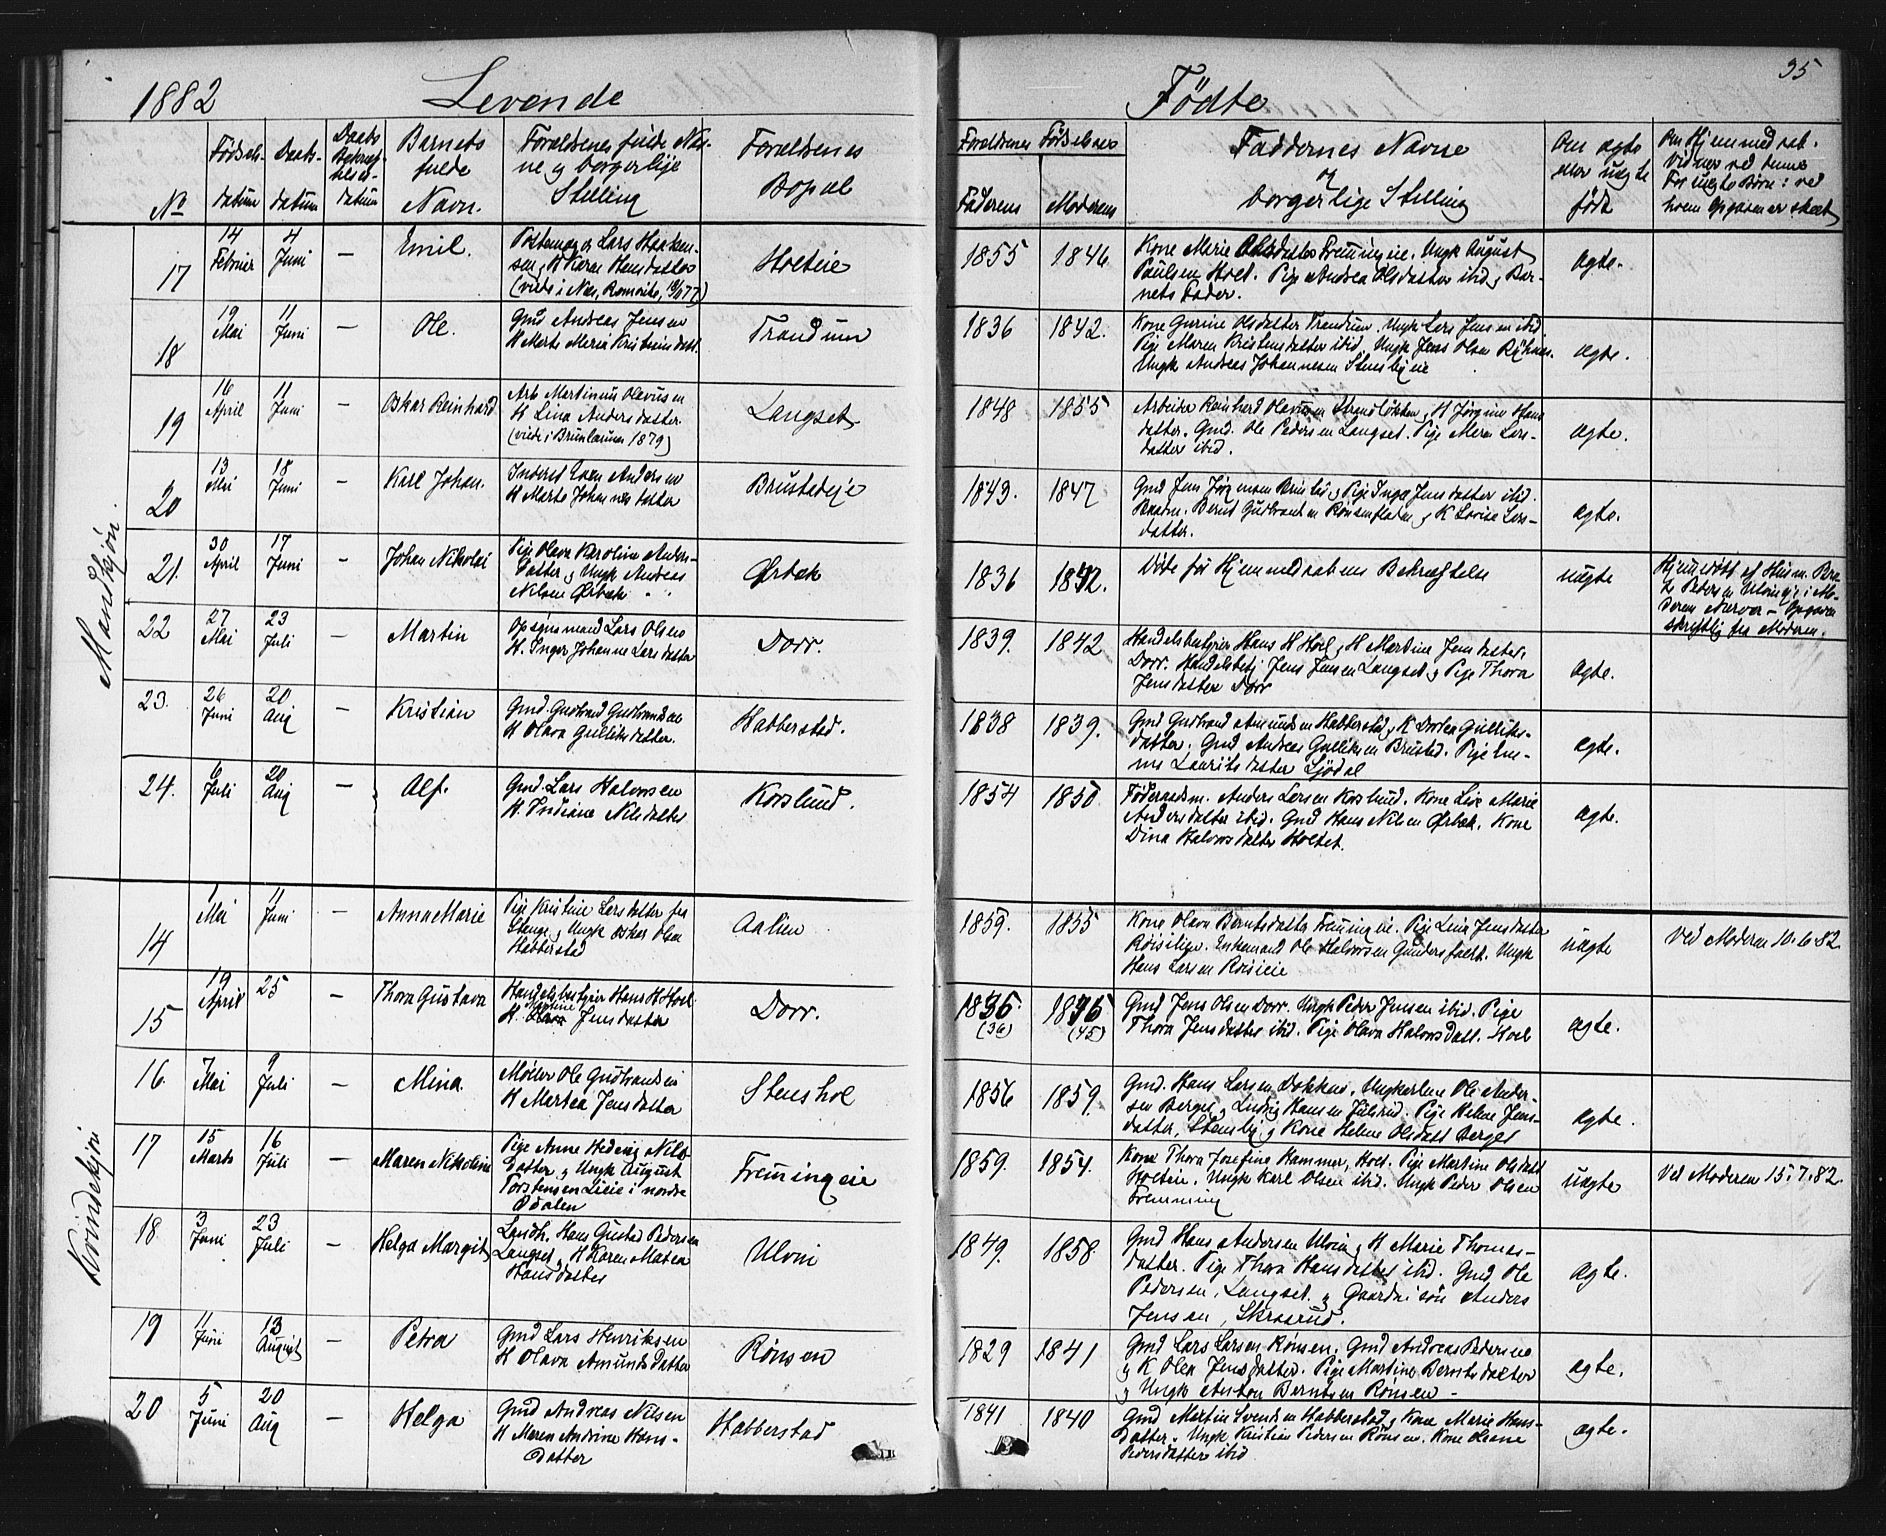 1882 Levende Fødte 35
No
Fødsels-
datum
Daabs-
datum
Daabs
Bekræf-
telses-
datum
Barnets
fulde
Navn.
Forældrenes fulde Nav-
ne og borgerlige
Stilling
Forældrenes
Bopæl
Forældrenes Fødselsaar
Faderens Moderens
Faddernes Navne
og
borgerlige Stilling
Om ægte
eller uægte
født
Mandkjøn.
17
14 Februar
4 Juni
—
Emil.
Lars Haaken-
sen, K Karen Hansdatter
(viede i Næs, Romerike, 77)
Holteie
1855 1846
Kone Marie Olsdatter Fremmingeie. Ungk August
Paulsen Holt. Pige Andrea Olsdatter ibid, Bar-
nets Fader.
ægte.
18
19 Mai
11 Juni
—
Ole.
Gmd Andreas Jensen
K Marte Maria Kristiansdatt.
Trandum
1836 1842.
Kone Gurine Olsdatter Trandum. Ungk Lars Jensen ibid.
Pige Maren Kristensdatter ibid. Ungk Jens Olsen
Ungk Andreas Johannesen Stensbyeie
ægte.
19
16 April
11 Juni
—
Oskar Reinhard
Arb Martinius Olavusen
K Lina Andersdatter.
(viede i Brunlanes 1879)
Langset
1848 1855
Arbeider Reinhard Olavusen Strandløkken, K Jørgine Hans
datter. Gmd. Ole Pedersen Langset. Pige Maren Lars-
datter ibid.
ægte.
20
13 Mai
18 Juni
—
Karl Johan.
Inderst Even Andersen
K Marte Johannesdatter
Brustadeje
1843. 1847
Gmd Jens Jørgensen, Pige Inga Jensdatter ibid.
Bernt Gudbrandsen Rønsenfladen, K Lovise Lars-
datter.
ægte.
21.
30 April
17 Juni
—
Johan Nikolai
Pige Olava Karoline Anders-
datter og Ungk Andreas
Nilsen Ørbæk
Ørbæk
1836 1842.
Døde før Hjemmedaabens Bekræftelse
uægte
Hjemmedøbt af Husm.
Pedersen i Mo-
derens Nærvær — Opgaven
skriftlig fra Moderen.
22
27 Mai
23 Juli
—
Martin
Opsynsmand Lars Olsen
K. Inger Johanne Larsdatter
Dorr.
1839. 1842
Handelsbestyrer Hans H Hoel, K Martine Jensdatter,
Dorr. Handelsbetj. Jens Jensen Langset, Pige Thora
Jensdatter Dorr
ægte.
23.
26 Juni
20 Aug
—
Kristian
Gmd. Gudbrand Gudbrandsen
K Olava Gulliksdatter.
Habberstad.
1838 1839.
Gmd Gudbrand Amundsen Habberstad, K Dortea Gulliks-
datter. Gmd Andreas Gulliksen Brustad. Pige Em-
ma Lauritsdatter Sjødal
ægte.
24.
6 Juli
20 Aug
—
Alf.
Gmd. Lars Halvorsen
K. Indiane Nilsdatter
Korslund.
1854 1850
Føderaadsm. Anders Larsen Korslund. Kone Lise Marie
Andersdatter ibid. Gmd Hans Nilsen Ørbæk. Kone
Dina Halvorsdatter Holtet.
ægte.
Kvindekjøn
14
1 Mai
11 Juni
—
Anna Marie
Pige Kristine Larsdatter fra
Stange, Ungk Oskar Olsen
Habberstad
Aalien
1859. 1855
Kone Olava Berntsdatter Fremmingeie. Pige Lina Jensdatter
Ole Halvorsen. Ungk
Hans Larsen
uægte
Ved Moderen 10.6.82.
15
19 April
25
—
Thora Gustava
Handelsbestyrer Hans H Hoel
K. Martine Jensdatter
Dorr.
1835 (36) 1835 (45)
Gmd Jens Olsen Dorr. Ungk Peder Jensen ibid. Pige
Thora Jensdatter ibid. Pige Olava Halvorsdatt. Hoel
ægte.
16.
7 Mai
9 Juli
—
Mina.
Møller Ole Gudbrandsen
K Martea Jensdatter
Stenshol
1856 1859
Gmd. Hans Larsen Dokken. Ungkarlene Ole Ander-
sen Berget, Ludvig Hansen Julsrud. Pige Helene Jens-
datter, Stensby, Kone Helene Olsdatt Berget
ægte.
17
15 Marts
16 Juli
—
Maren Nikoline
Pige Anne Hedevig Nils-
datter, Ungk August
Torstensen Lieie i nordre
Odalen
Fremingeie
1859. 1854.
Kone Thora Josefine Hammer, Holt. Pige Martine Olsdatt
Holteie. Ungk Karl Olsen ibid. Ungk Peder Olsen
Fremming
uægte
Ved Moderen 15.7.82.
18
3 Juni
23 Juli
—
Helga Margit
Landh. Hans Gustav Pedersen
Langset, K Karen Matea
Hansdatter
Ulvin
1849. 1858
Gmd Hans Andersen Ulvin, K Marie Thomas-
datter. Pige Thora Hansdatter ibid. Gmd. Ole
Pedersen, Langset. Gaardmandssøn Anders
Jensen, Skraarud.
ægte.
19
11 Juni
13 August
—
Petra
Gmd Lars Henriksen
K Olava Amundsdatter
Rønsen
1829 1841
Gmd Lars Larsen Rønsen. Gmd Andreas Pedersen
K Olea Jensdatter. Pige Martine Berntsdatter
Ungk Anton Berntsen Rønsen —
ægte.
20
5 Juni
20 Aug
—
Helga
Gmd Andreas Nilsen
K Maren Andrine Hans-
datter
Habberstad
1841 1840
Gmd Martin Svendsen Habberstad, Kone Marie Hans-
datter. Ungk Kristian Pedersen Rønsen. Kone Oleane
Pedersdatter ibid
ægte.